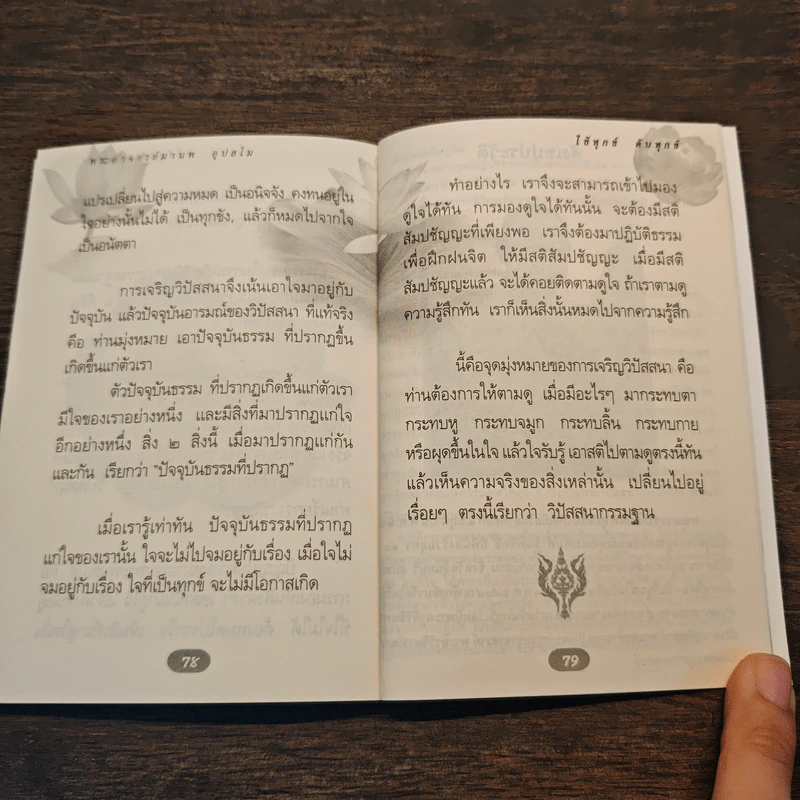 พระอาจารย์มานพ อุปสโม
แปรเปลี่ยนไปสู่ความหมด เป็นอนิจจัง คงทนอยู่ใน
ใจอย่างนั้นไม่ได้ เป็นทุกขัง, แล้วก็หมดไปจากใจ
เป็นอนัตตา
การเจริญวิปัสสนาจึงเน้นเอาใจมาอยู่กับ
ปัจจุบัน แล้วปัจจุบันอารมณ์ของวิปัสสนา ที่แท้จริง
คือ ท่านมุ่งหมาย เอาปัจจุบันธรรม ที่ปรากฏขึ้น
เกิดขึ้นแก่ตัวเรา
ตัวปัจจุบันธรรม ที่ปรากฏเกิดขึ้นแก่ตัวเรา
มีใจของเราอย่างหนึ่ง และมีสิ่งที่มาปรากฏแก่ใจ
อีกอย่างหนึ่ง สิ่ง ๒ สิ่งนี้ เมื่อมาปรากฏแก่กัน
และกัน เรียกว่า "ปัจจุบันธรรมที่ปรากฏ"
เมื่อเรารู้เท่าทัน ปัจจุบันธรรมที่ปรากฏ
แก่ใจของเรานั้น ใจจะไม่ไปจมอยู่กับเรื่อง เมื่อใจไม่
จมอยู่กับเรื่อง ใจที่เป็นทุกข์ จะไม่มีโอกาสเกิด
78
ใช้ทุกข์ ดับทุกข์
ทำอย่างไร เราจึงจะสามารถเข้าไปมอง
ดูใจได้ทัน การมองดูใจได้ทันนั้น จะต้องมีสติ
สัมปชัญญะที่เพียงพอ เราจึงต้องมาปฏิบัติธรรม
เพื่อฝึกฝนจิต ให้มีสติสัมปชัญญะ เมื่อมีสติ
สัมปชัญญะแล้ว จะได้คอยติดตามดูใจ ถ้าเราตามดู
ความรู้สึกทัน เราก็เห็นสิ่งนั้นหมดไปจากความรู้สึก
นี้คือจุดมุ่งหมายของการเจริญวิปัสสนา คือ
ท่านต้องการให้ตามดู เมื่อมีอะไรๆ มากระทบตา
กระทบหู กระทบจมูก กระทบลิ้น กระทบกาย
หรือผุดขึ้นในใจ แล้วใจรับรู้ เอาสติไปตามดูตรงนี้ทัน
แล้วเห็นความจริงของสิ่งเหล่านั้น เปลี่ยนไปอยู่
เรื่อยๆ ตรงนี้เรียกว่า วิปัสสนากรรมฐาน
79